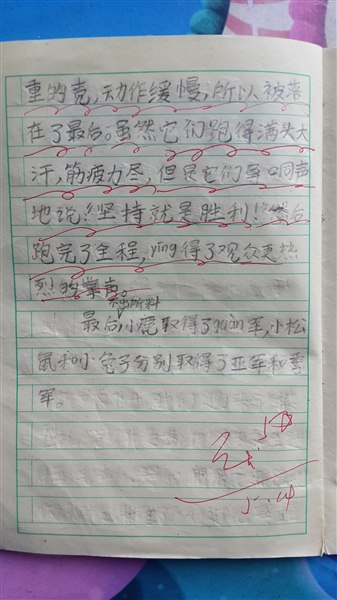 重的壳,动作缓慢,所以被落
在了最后。虽然它们跑得满头大
汗,筋疲力尽,但是它们异口同声
地说:“坚持就是胜利!”然后
跑完了全程,ying得了观众更热
烈的掌声。
不出所料
最后,小鹿取得了guàn军,小松
鼠和小兔子分别取得了亚军和季
军。
5.14